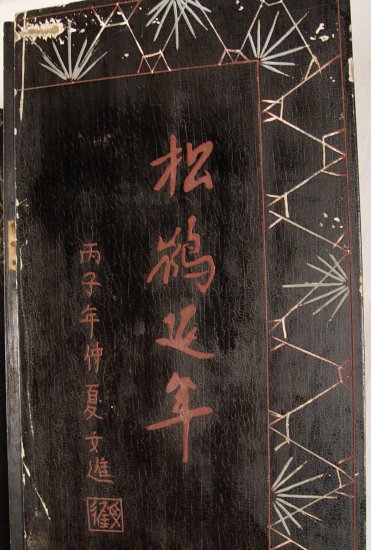 松鶴延年
丙子年仲夏文進